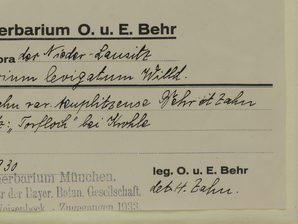 erbarium O. u. E. Behr
ora der Nieder-Lausitz
rium levigatum Willd.
var. Behr et Zahn
"Torfloch" bei Krohle
30
erbarium München.
der Bayer. Botan. Gesellschaft,
Zugegangen 1933
leg. O. u. E. Behr
det. H. Zahn.